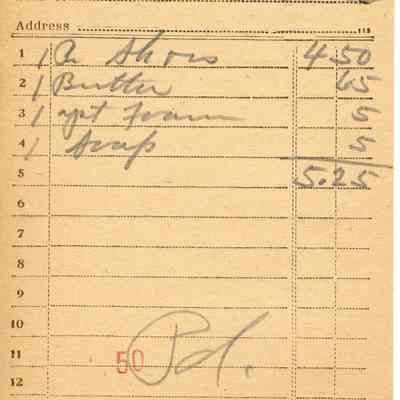 Address
1 1 Shoes 4.50
2 1 Butter 65
3 1 5
4 1 Soap 5
5 5.25
6
7
8
9
10
11 50 Pd.
12